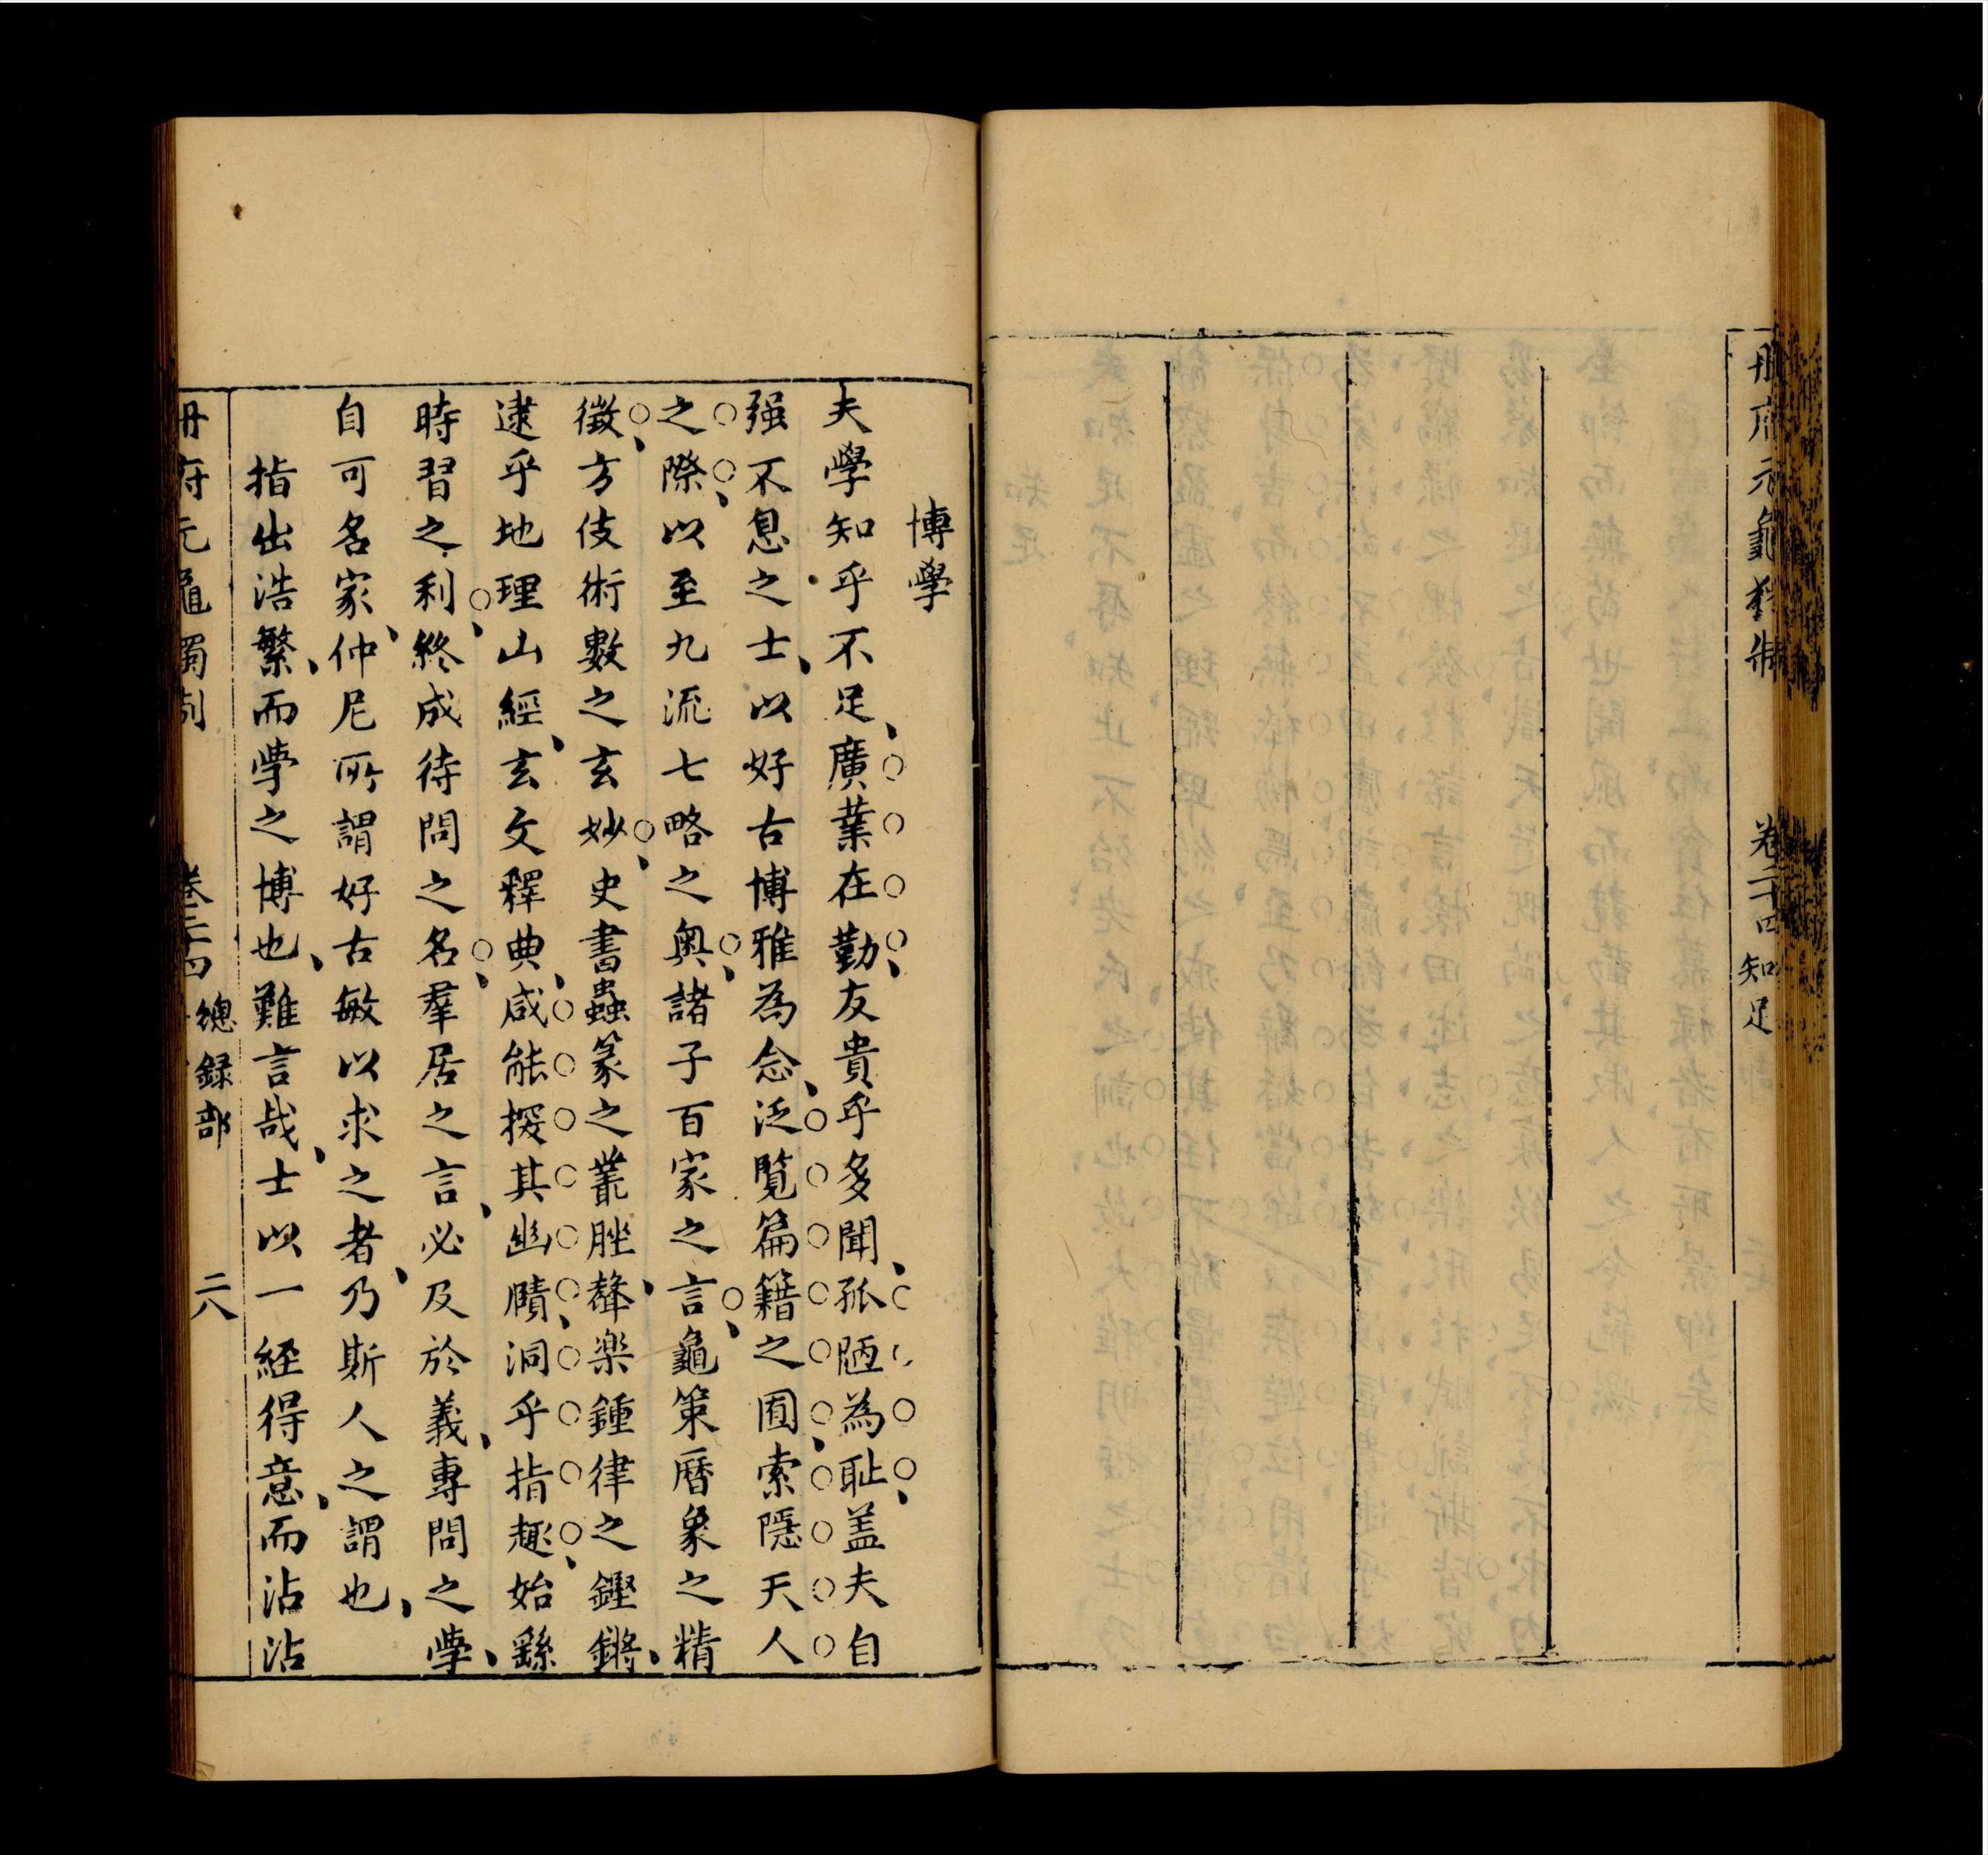 册府元龜獨制
卷二十四
知足
博學
夫學知乎不足廣業在勤友貴乎多聞孤陋為耻盖夫自
强不息之士以好古博雅為念泛覧篇籍之囿索隱天人
之際以至九流七略之奥諸子百家之言龜策曆象之精
徵方伎術數之玄妙史書蟲篆之叢脞聲楽鍾律之鏗鏘
逮乎地理山經玄文釋典咸能探其幽賾洞乎指趣始繇
時習之利終成待問之名羣居之言必及於義專問之學
自可名家仲尼所謂好古敏以求之者乃斯人之謂也
指出浩繁而學之博也難言哉士以一経得意而沾沾
册府元龜獨制
卷二十四
總録部
二八